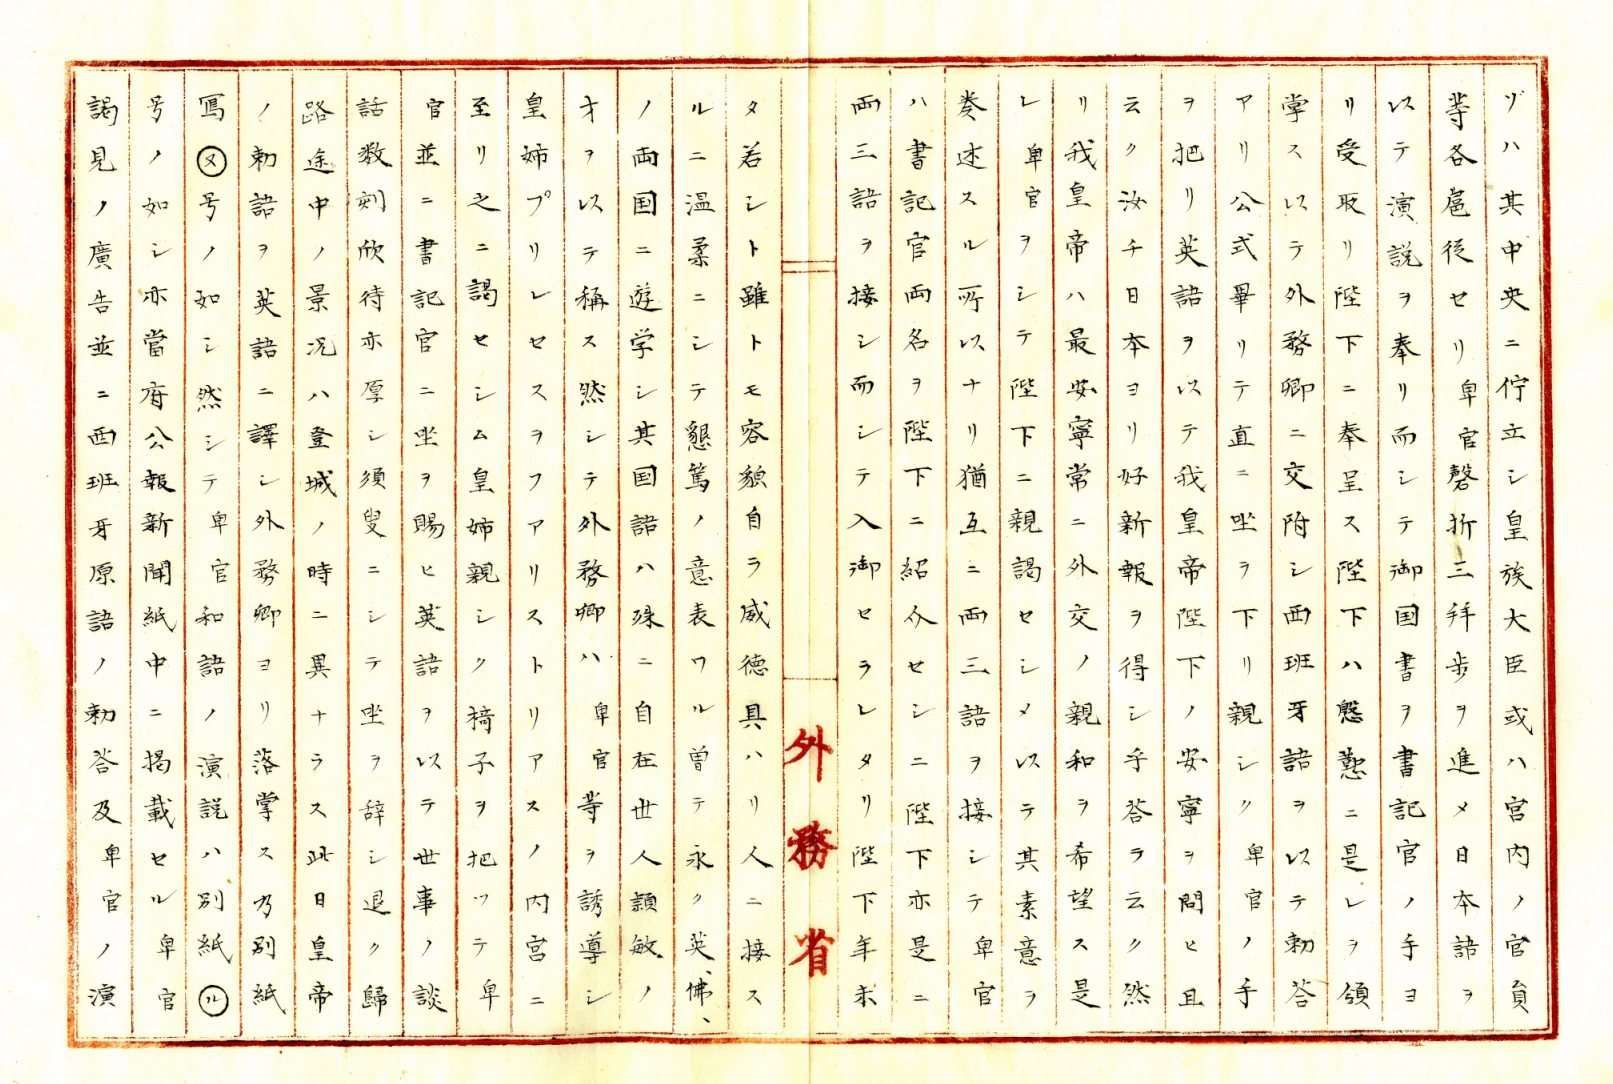 ヅハ其中央ニ佇立シ皇族大臣或ハ宮内ノ官員
等各扈従セリ卑官磬折三拜歩ヲ進メ日本語ヲ
以テ演説ヲ奉リ而シテ御国書ヲ書記官ノ手ヨ
リ受取リ陛下ニ奉呈ス陛下ハ慇懃ニ是レヲ領
掌ス以テ外務卿ニ交附シ西班牙語ヲ以テ勅答
アリ公式畢リテ直ニ坐ヲ下リ親シク卑官ノ手
ヲ把リ英語ヲ以テ我皇帝陛下ノ安寧ヲ問ヒ且
云ク汝チ日本ヨリ好新報ヲ得シ乎答ラ云ク然
リ我皇帝ハ最安寧常ニ外交ノ親和ヲ希望ス是
レ卑官ヲシテ陛下ニ親謁セシメ以テ其素意ヲ
奏述スル所以ナリ猶互ニ両三語ヲ接シテ卑官
ハ書記官両名ヲ陛下ニ紹介セシニ陛下亦是ニ
両三語ヲ接シ而シテ入御セラレタリ陛下年未
外務省
タ若シト雖トモ容貌自ラ威徳具ハリ人ニ接ス
ルニ温柔ニシテ懇篤ノ意表ワル曽テ永ク英、佛、
ノ両国ニ遊学シ其国語ハ殊ニ自在世人頴敏ノ
才ヲ以テ稱ス然シテ外務卿ハ卑官等ヲ誘導シ
皇姉プリレセスヲフアリストリアスノ内宮ニ
至リ之ニ謁セシム皇姉親シク椅子ヲ把ツテ卑
官並ニ書記官ニ坐ヲ賜ヒ英語ヲ以テ世事ノ談
話数刻欣待亦厚シ須臾ニシテ坐ヲ辞シ退ク歸
路途中ノ景况ハ登城ノ時ニ異ナラス此日皇帝
ノ勅語ヲ英語ニ譯シ外務卿ヨリ落掌ス乃別紙
寫㋦号ノ如シ然シテ卑官和語ノ演説ハ別紙㋸
号ノ如シ亦當府公報新聞紙中ニ掲載セル卑官
謁見ノ廣告並ニ西班牙原語ノ勅答及卑官ノ演